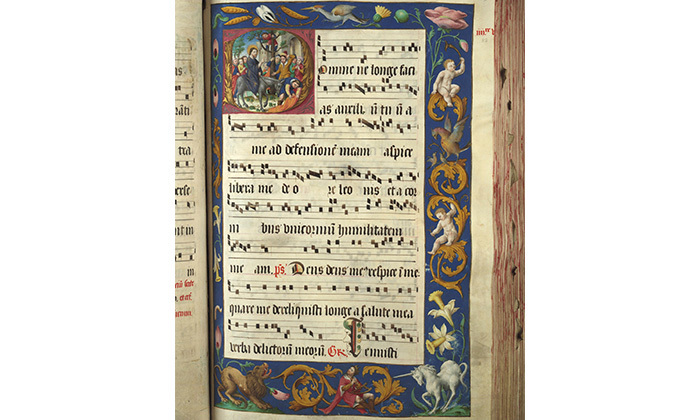 as
tra
Domine ne longe faci
as auxiliū tuū a
me ad defensionē meam aspice
libera me de o re leo nis et a cor
ni bus unicorniū humilitatem
me am. ps. Deus deus me' respice i me
quare me dereliquisti longe a salute mea
verba delictorū meorū. Gr. Tenuisti